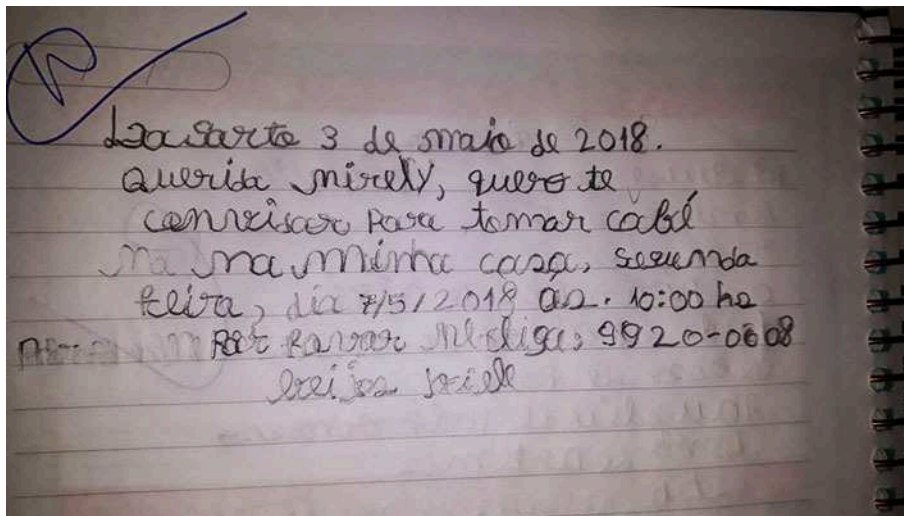 3 de maio de 2018.
Querida mirely, quero te
para tomar cafê
na na minha casa, segunda
feira, dia 7/5/2018 as. 10:00 hs
Por favor me liga, 9920-0608
beijos